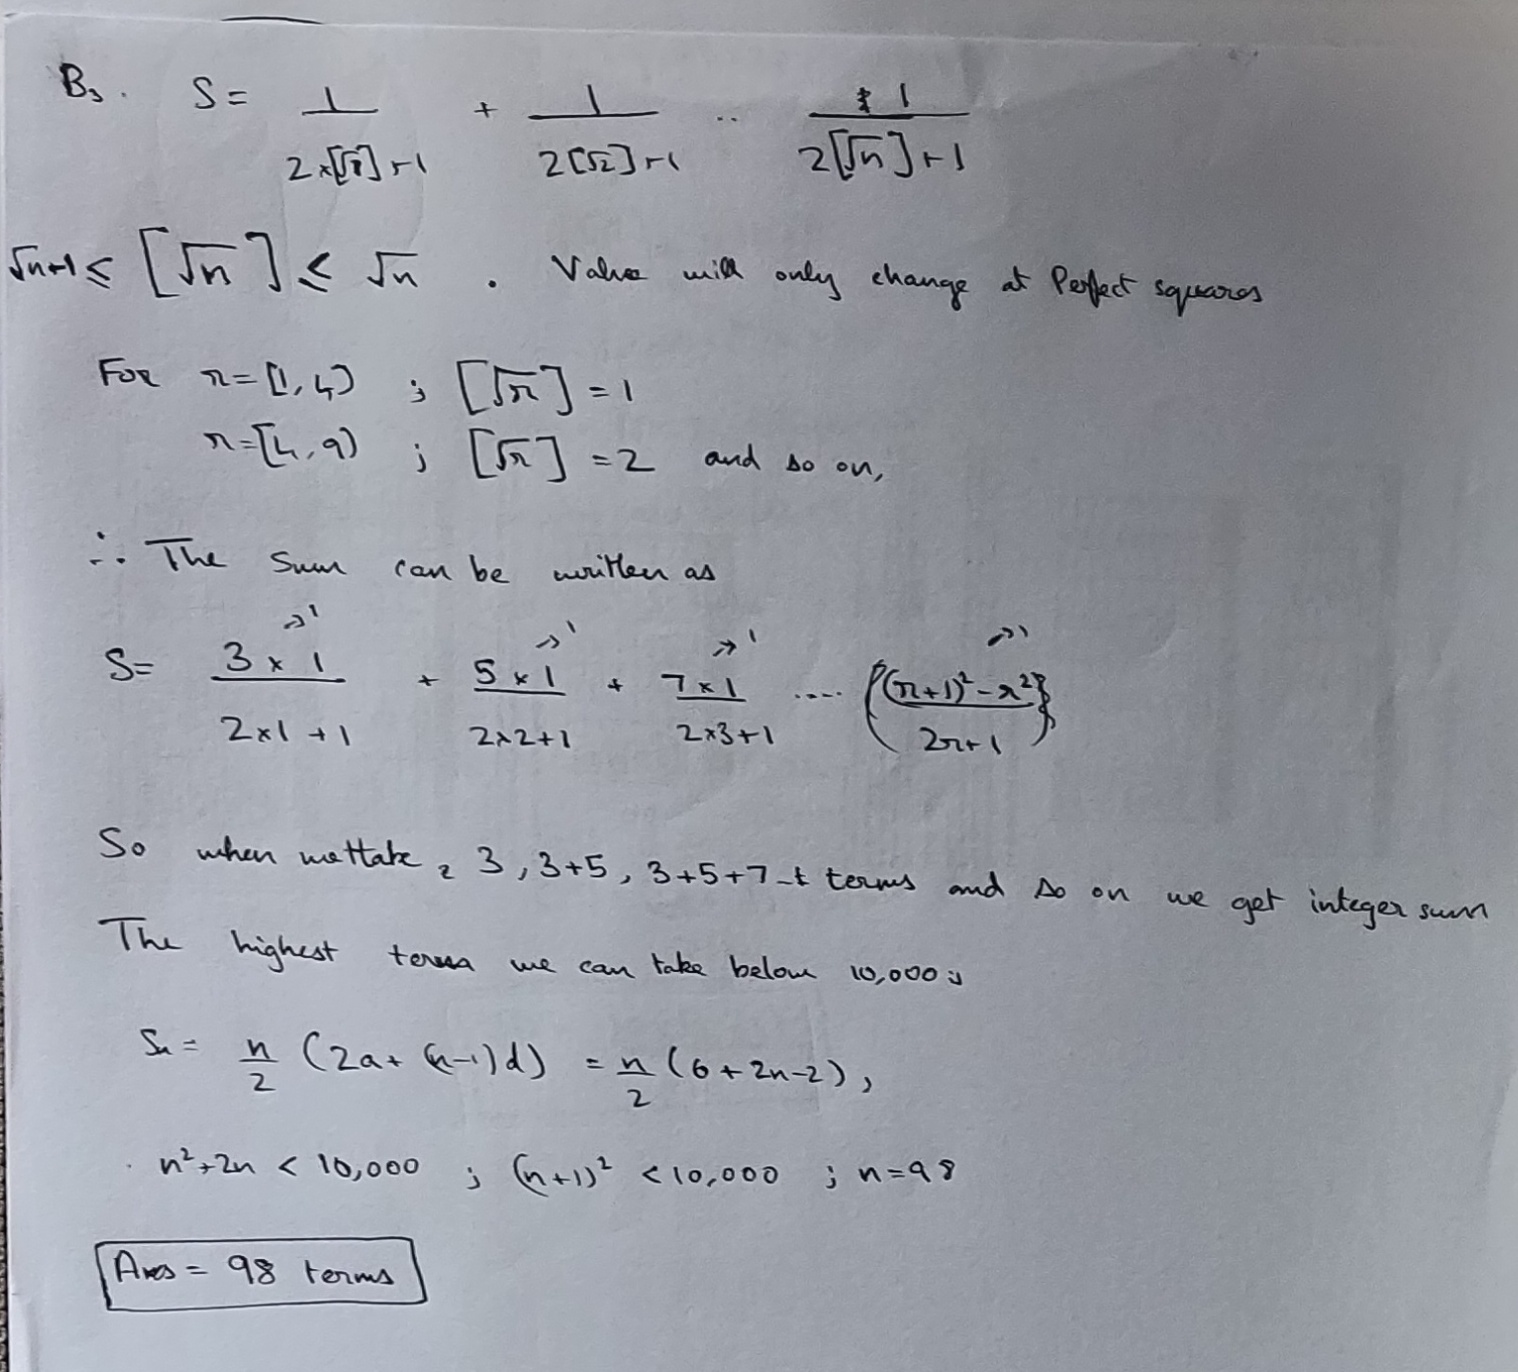 B3. S = 1/(2×[√1]+1) + 1/(2[√2]+1) .. 1/(2[√n]+1)
√n+1 ≤ [√n] ≤ √n . Value will only change at Perfect squares
For r=[1,4) ; [√r] = 1
r=[4,9) ; [√r] = 2 and so on,
∴ The Sum can be written as
S= (3×1)/(2×1+1) →1 + (5×1)/(2×2+1) →1 + (7×1)/(2×3+1) →1 .... {((r+1)²-r²)/(2r+1)} →1
So when we take 3, 3+5, 3+5+7 terms and so on we get integer sum
The highest term we can take below 10,000 is
Sn = n/2 (2a+(n-1)d) = n/2 (6+2n-2),
n²+2n < 10,000 ; (n+1)² < 10,000 ; n=98
Ans = 98 terms